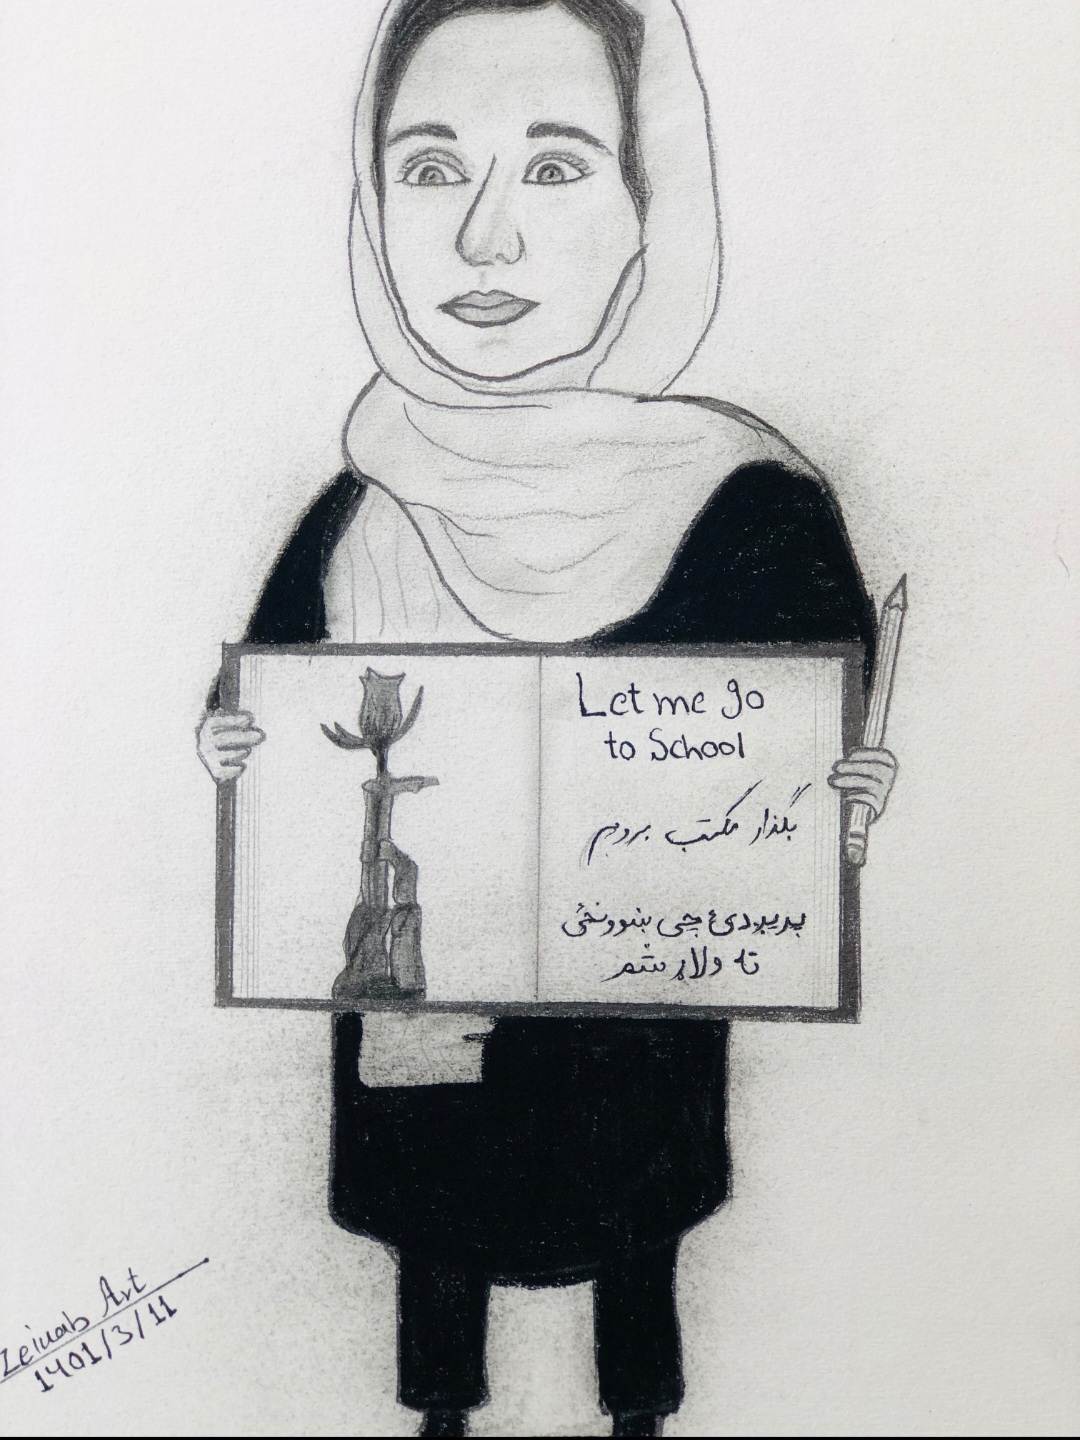 Let me go
to School
بگذار مکتب بروم
پریږدئ چی ښوونځی
ته ولاړ شم
Zeinab Art
1401/3/11